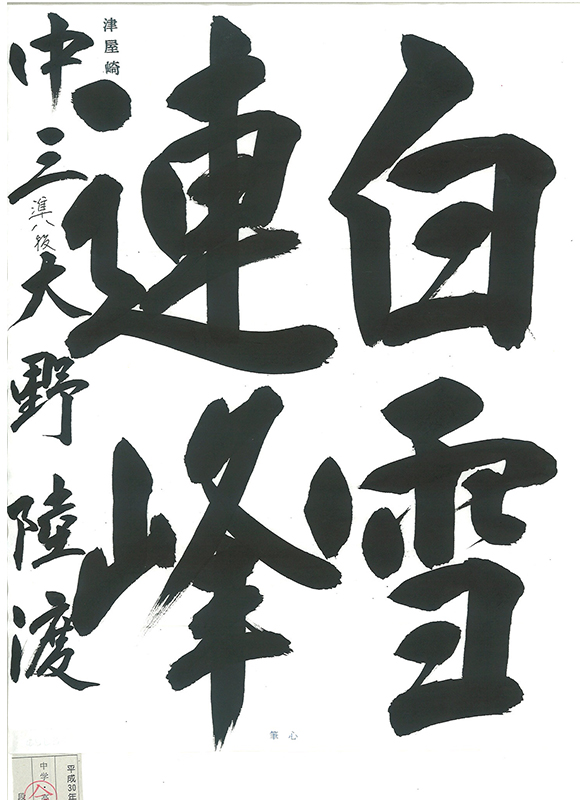 白雪
連峰
津屋崎
中三 準八段 大野陸渡
心筆
平成30年
中学
段